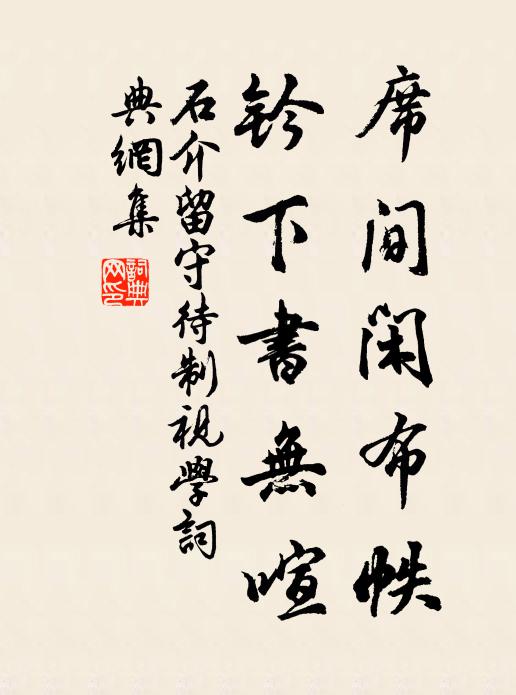 席間閑布帙
鈴下書無喧
石介留守待制視學詞
典網集
詞典網印